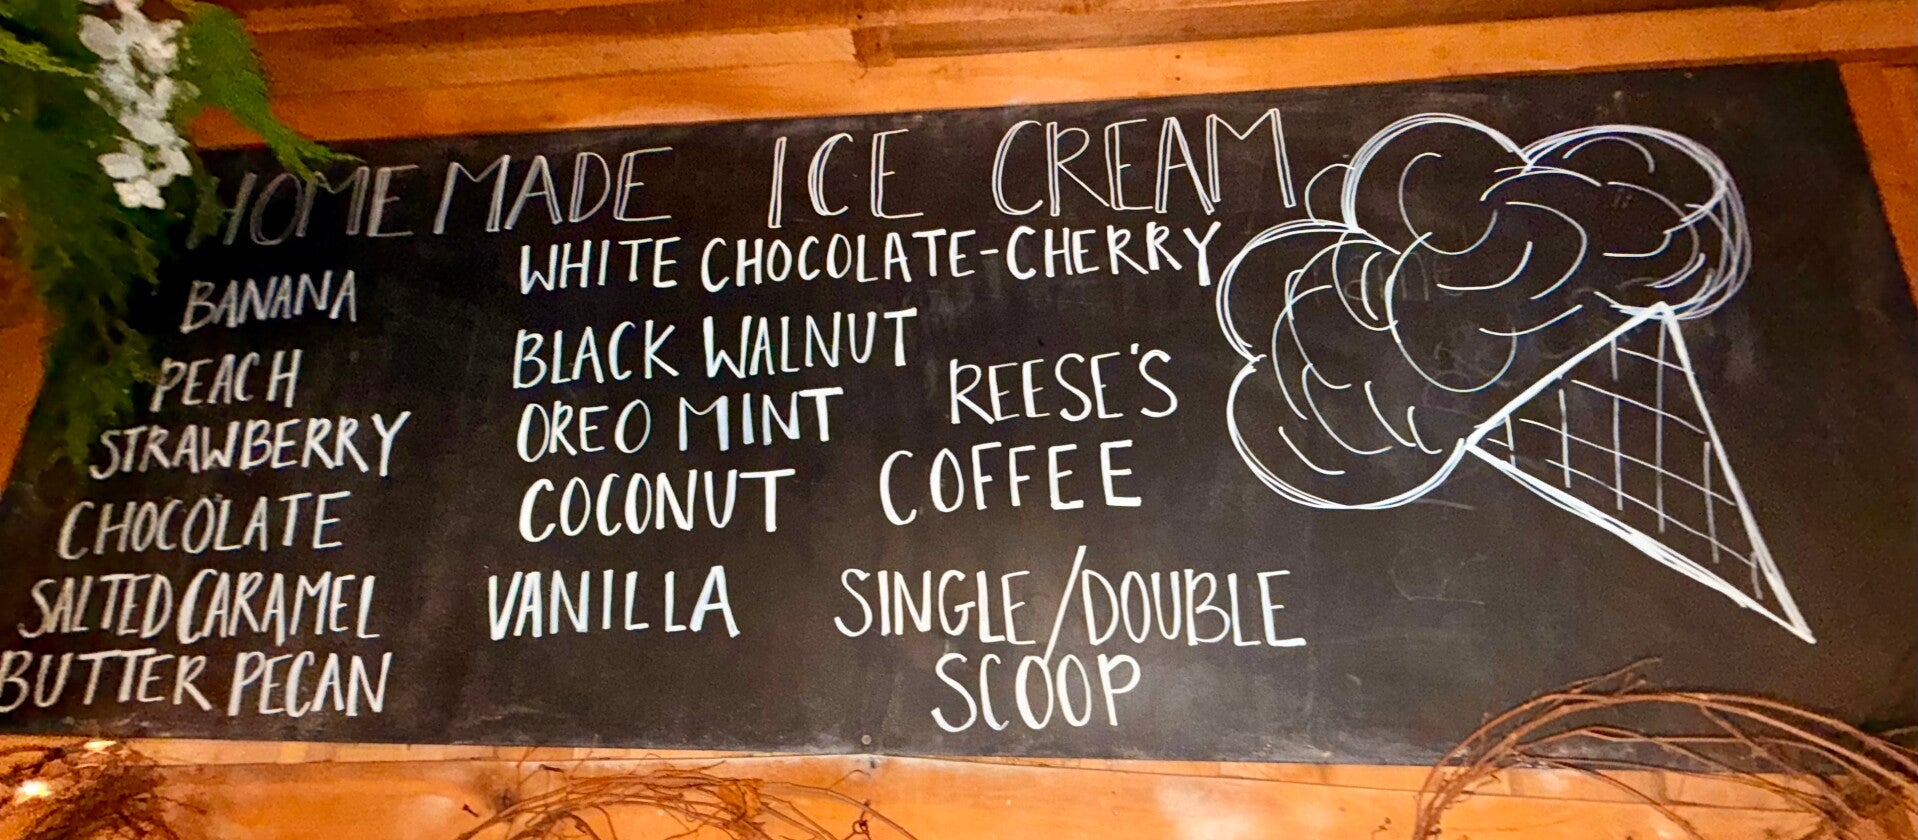 HOMEMADE ICE CREAM
BANANA
PEACH
STRAWBERRY
CHOCOLATE
SALTED CARAMEL
BUTTER PECAN
WHITE CHOCOLATE-CHERRY
BLACK WALNUT
OREO MINT
COCONUT
VANILLA
REESE'S
COFFEE
SINGLE/DOUBLE
SCOOP